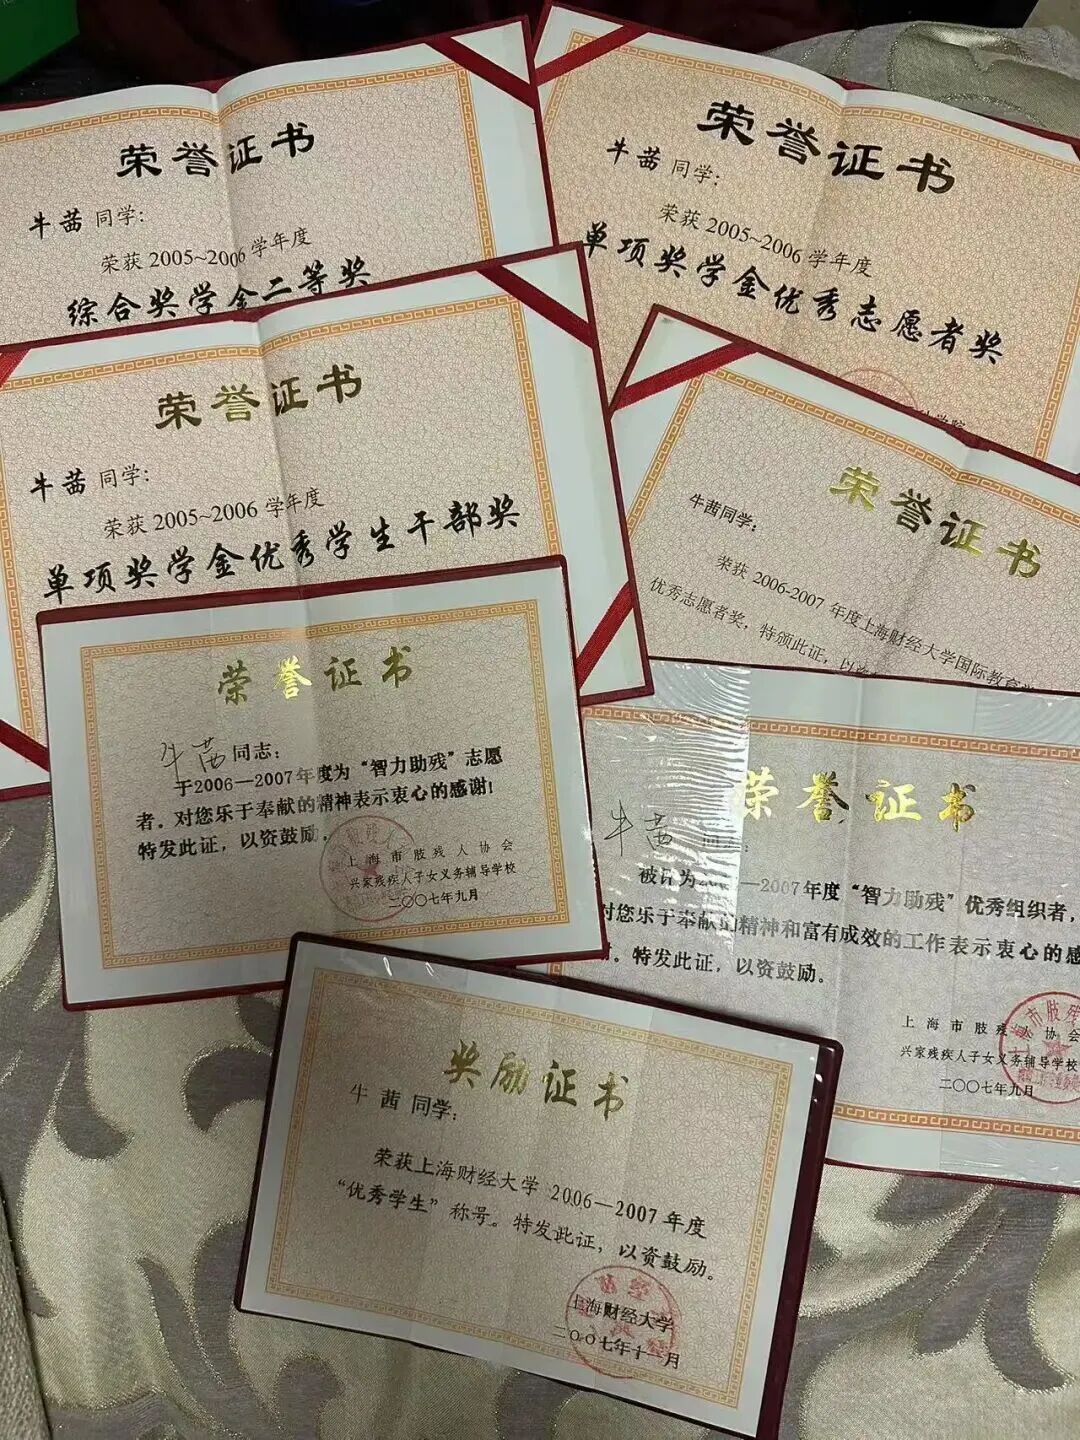 荣誉证书
牛茜 同学：
荣获 2005~2006 学年度
综合奖学金二等奖
荣誉证书
牛茜 同学：
荣获 2005~2006 学年度
单项奖学金优秀志愿者奖
荣誉证书
牛茜 同学：
荣获 2005~2006 学年度
单项奖学金优秀学生干部奖
荣誉证书
牛茜同学：
荣获 2006-2007 年度上海财经大学国际教育
优秀志愿者奖，特颁此证，以
荣誉证书
牛茜 同志：
于2006—2007年度为“智力助残”志愿
者。对您乐于奉献的精神表示衷心的感谢！
特发此证，以资鼓励。
上海市肢残人协会
兴家残疾人子女义务辅导学校
二〇〇七年九月
荣誉证书
牛茜 同
被评为 —2007年度“智力助残”优秀组织者，
对您乐于奉献的精神和富有成效的工作表示衷心的感
。特发此证，以资鼓励。
上海市肢残人协会
兴家残疾人子女义务辅导学校
二〇〇七年九月
奖励证书
牛茜 同学：
荣获上海财经大学 2006—2007 年度
“优秀学生”称号。特发此证，以资鼓励。
上海财经大学
二〇〇七年十一月